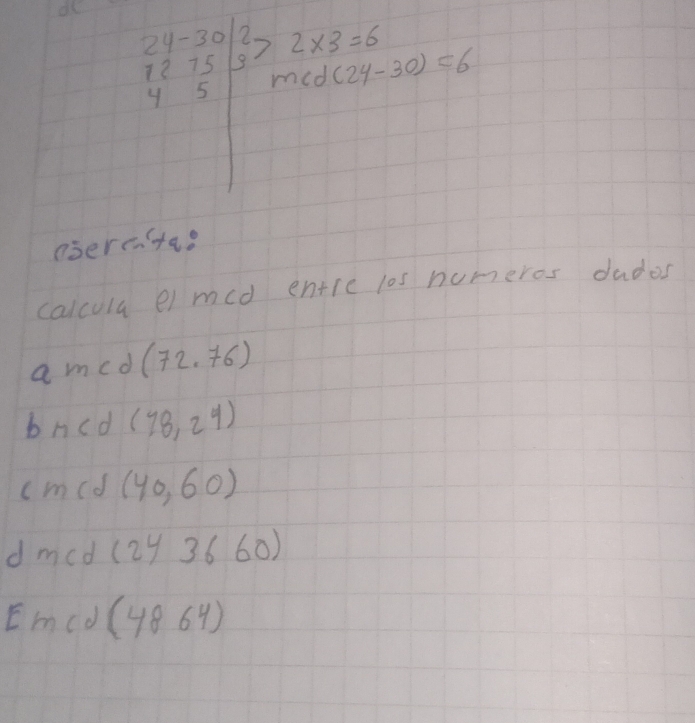 24-30 | 2 > 2x3=6
12 15 | 3 mcd(24-30)=6
4 5
ejercita:
calcula el mcd entre los numeros dados
a mcd(12.16)
b mcd (18,24)
c mcd (40,60)
d mcd (24 36 60)
E mcd (48 64)